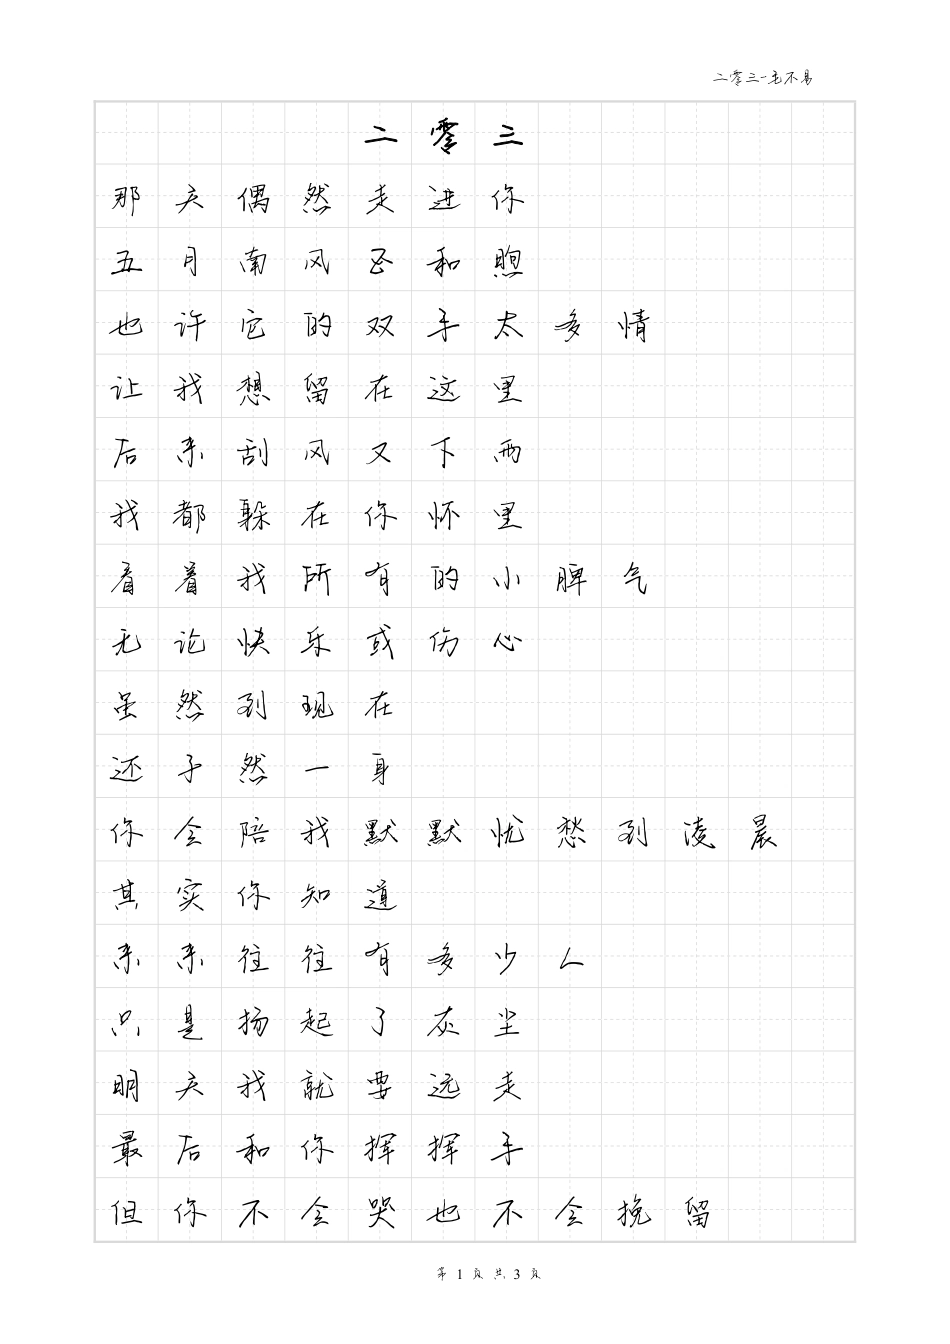 二零三-毛不易
二零三
那天偶然走进你
五月南风正和煦
也许它的双手太多情
让我想留在这里
后来刮风又下雨
我都躲在你怀里
看着我所有的小脾气
无论快乐或伤心
虽然到现在
还孑然一身
你会陪我默默忧愁到凌晨
其实你知道
来来往往有多少人
只是扬起了灰尘
明天我就要远走
最后和你挥挥手
但你不会哭也不会挽留
第 1 页 共 3 页